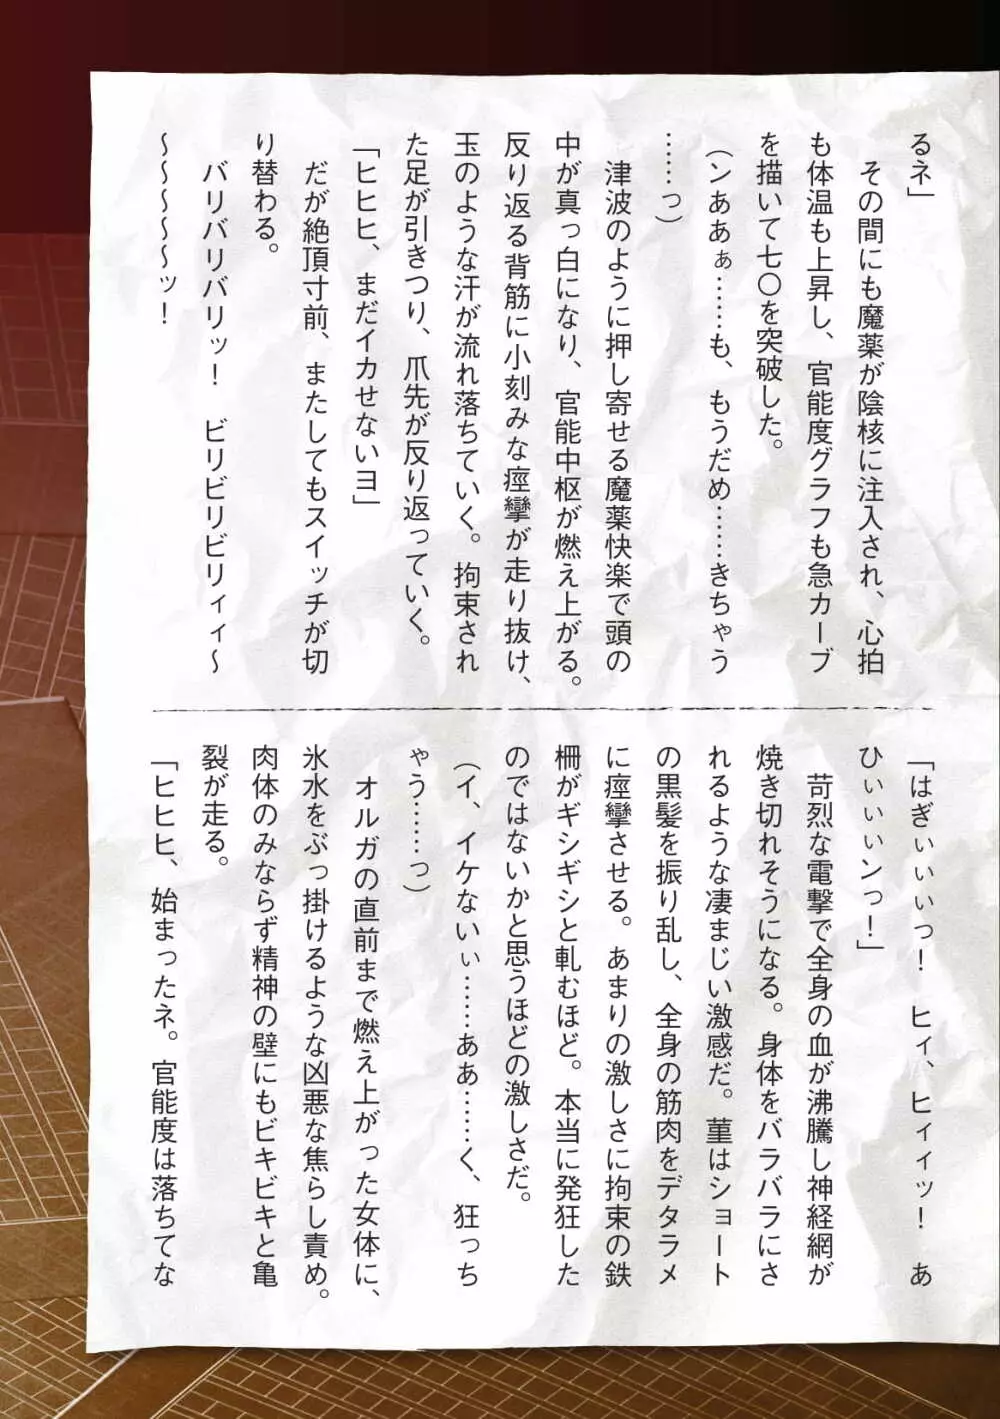 るネ」
　その間にも魔薬が陰核に注入され、心拍
も体温も上昇し、官能度グラフも急カーブ
を描いて七〇を突破した。
（ンああぁ……も、もうだめ……きちゃう
……っ）
　津波のように押し寄せる魔薬快楽で頭の
中が真っ白になり、官能中枢が燃え上がる。
反り返る背筋に小刻みな痙攣が走り抜け、
玉のような汗が流れ落ちていく。拘束され
た足が引きつり、爪先が反り返っていく。
「ヒヒヒ、まだイカせないヨ」
　だが絶頂寸前、またしてもスイッチが切
り替わる。
　バリバリバリッ！　ビリビリビリィィ〜
〜〜〜〜〜ッ！
「はぎぃぃぃっ！　ヒィ、ヒィィッ！　あ
ひぃぃぃンっ！」
　苛烈な電撃で全身の血が沸騰し神経網が
焼き切れそうになる。身体をバラバラにさ
れるような凄まじい激感だ。菫はショート
の黒髪を振り乱し、全身の筋肉をデタラメ
に痙攣させる。あまりの激しさに拘束の鉄
柵がギシギシと軋むほど。本当に発狂した
のではないかと思うほどの激しさだ。
（イ、イケないぃ……ああ……く、狂っち
ゃう……っ）
　オルガの直前まで燃え上がった女体に、
氷水をぶっ掛けるような凶悪な焦らし責め。
肉体のみならず精神の壁にもビキビキと亀
裂が走る。
「ヒヒヒ、始まったネ。官能度は落ちてな